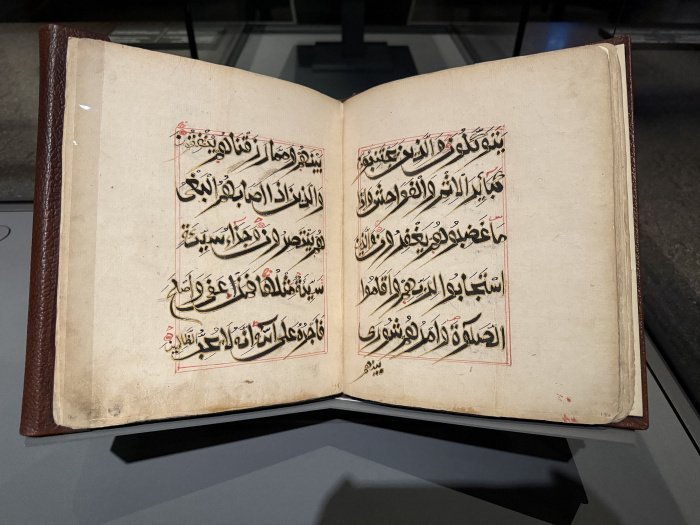 يَتَوَكَّلُونَ وَالَّذِينَ يَجْتَنِبُونَ
كَبَايِرَ الْاِثْمِ وَالْفَوَاحِشَ وَاِذَا
مَا غَضِبُوا هُمْ يَغْفِرُونَ وَالَّذِينَ
اسْتَجَابُوا لِرَبِّهِمْ وَاَقَامُوا
الصَّلٰوةَ وَاَمْرُهُمْ شُورٰى
بينهم
بَيْنَهُمْ وَمِمَّا رَزَقْنَاهُمْ يُنْفِقُونَ
وَالَّذِينَ اِذَا اَصَابَهُمُ الْبَغْىُ
هُمْ يَنْتَصِرُونَ وَجَزَاءُ سَيِّئَةٍ
سَيِّئَةٌ مِثْلُهَا فَمَنْ عَفٰى وَاَصْلَحَ
فَاَجْرُهُ عَلَى اللهِ اِنَّهُ لَا يُحِبُّ الظَّالِمِينَ